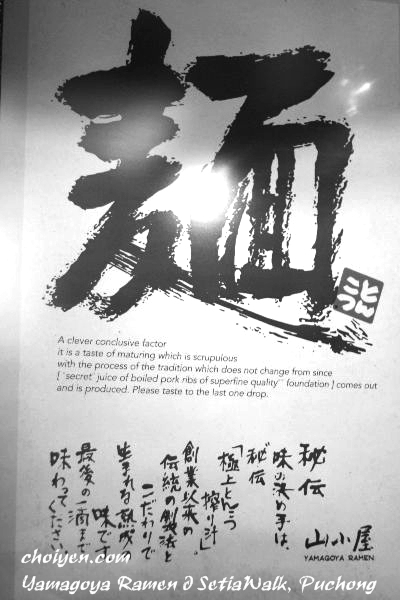 麺
とんこつ
A clever conclusive factor
it is a taste of maturing which is scrupulous
with the process of the tradition which does not change from since
[ `secret` juice of boiled pork ribs of superfine quality`` foundation ] comes out
and is produced. Please taste to the last one drop.
秘伝
味の決め手は、
秘伝
「極上とんこつ
搾り汁」。
創業以来の
伝統の製法と
こだわりで
生まれた熟成
味です。
最後の一滴まで
味わってください
山小屋
YAMAGOYA RAMEN
choiyen.com
Yamagoya Ramen @ SetiaWalk, Puchong